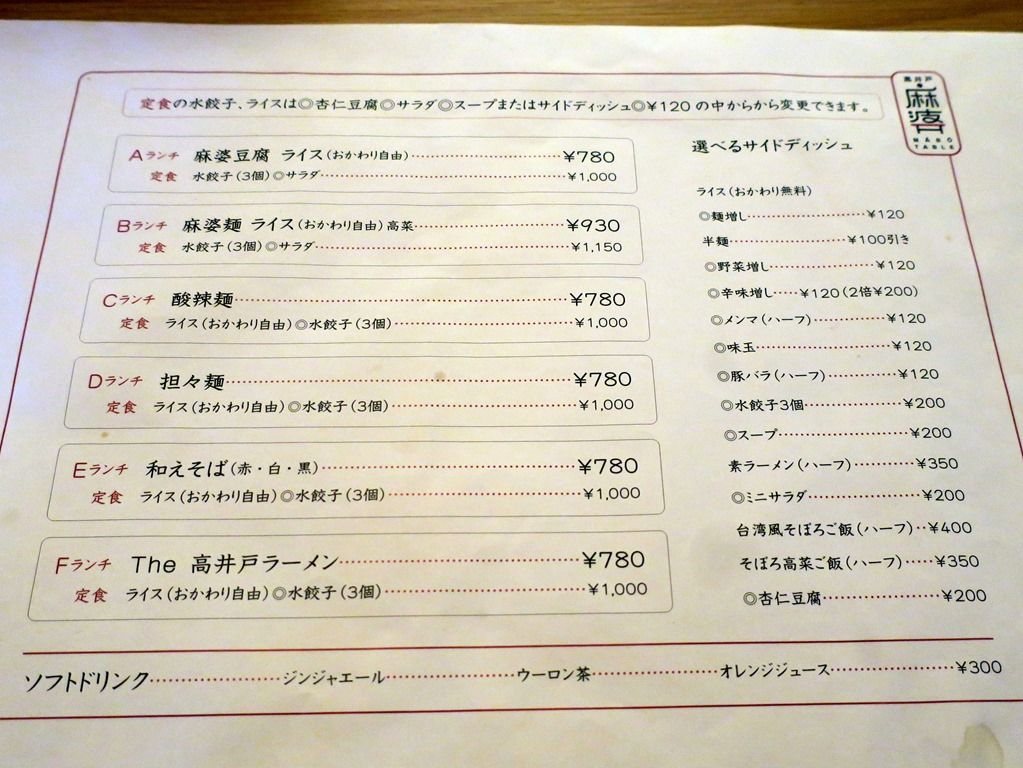 定食の水餃子、ライスは◎杏仁豆腐◎サラダ◎スープまたはサイドディッシュ◎¥120 の中からから変更できます。
高井戸
麻婆
MABO
TABLE
Aランチ 麻婆豆腐 ライス(おかわり自由)……¥780
定食 水餃子(3個)◎サラダ……¥1,000
Bランチ 麻婆麺 ライス(おかわり自由)高菜……¥930
定食 水餃子(3個)◎サラダ……¥1,150
Cランチ 酸辣麺……¥780
定食 ライス(おかわり自由)◎水餃子(3個)……¥1,000
Dランチ 担々麺……¥780
定食 ライス(おかわり自由)◎水餃子(3個)……¥1,000
Eランチ 和えそば(赤・白・黒)……¥780
定食 ライス(おかわり自由)◎水餃子(3個)……¥1,000
Fランチ The 高井戸ラーメン……¥780
定食 ライス(おかわり自由)◎水餃子(3個)……¥1,000
選べるサイドディッシュ
ライス(おかわり無料)
◎麺増し……¥120
半麺……¥100引き
◎野菜増し……¥120
◎辛味増し……¥120(2倍¥200)
◎メンマ(ハーフ)……¥120
◎味玉……¥120
◎豚バラ(ハーフ)……¥120
◎水餃子3個……¥200
◎スープ……¥200
素ラーメン(ハーフ)……¥350
◎ミニサラダ……¥200
台湾風そぼろご飯(ハーフ)‥¥400
そぼろ高菜ご飯(ハーフ)……¥350
◎杏仁豆腐……¥200
ソフトドリンク……ジンジャエール……ウーロン茶……オレンジジュース……¥300